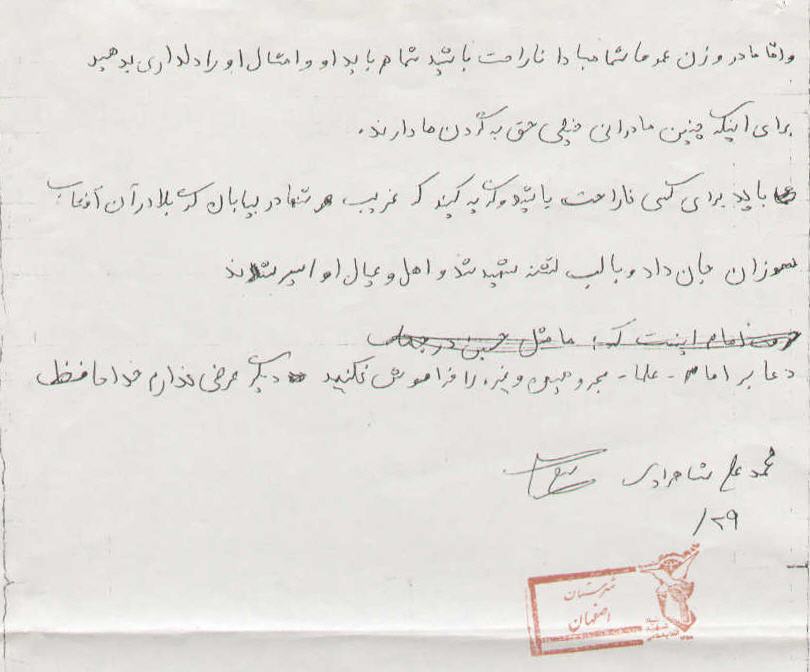 و اما مادر و زن عمو ما شما مبادا ناراحت باشید شما هم باید او و امثال او را دلداری بدهید
برای اینکه چنین مادرانی خیلی حق به گردن ما دارند.
باید برای کسی ناراحت باشید و گریه کنید که غریب و تنها در بیابان کربلا در آن آفتاب
سوزان جان داد و با لب تشنه شهید شد و اهل و عیال او اسیر شدند
امام اینست که: ما مثل حسین در جنگ
دعا بر امام - علما - مجروحین و غیره را فراموش نکنید دیگر عرضی ندارم خداحافظ
محمد علی شاهمرادی
/۲۹
شهرستان
اصفهان